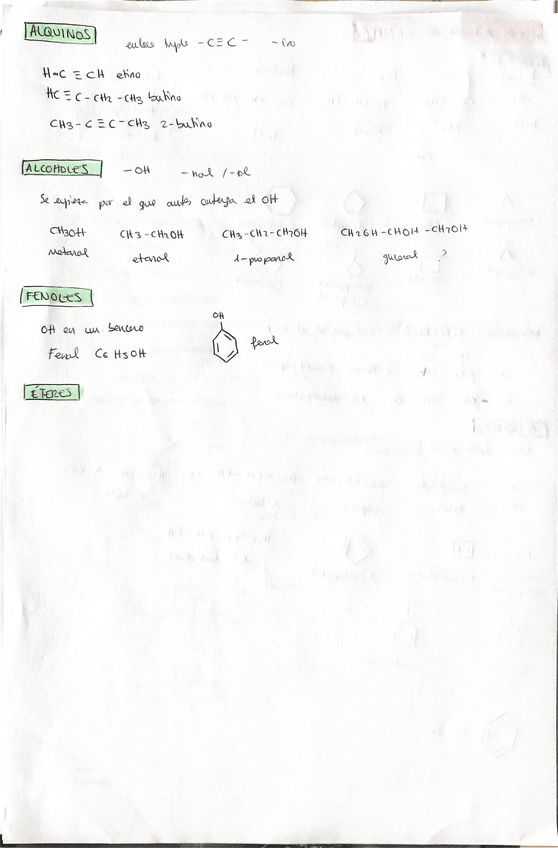 ALQUINOS
enlace triple -C≡C- -ino
H-C≡CH etino
HC≡C-CH2-CH3 butino
CH3-C≡C-CH3 2-butino
ALCOHOLES -OH -nol /-ol
Se empieza por el que antes contenga el OH
CH3OH CH3-CH2OH CH3-CH2-CH2OH CH2OH-CHOH-CH2OH
metanol etanol 1-propanol ?
FENOLES
OH en un benceno
OH
Fenol C6H5OH fenol
ÉTERES